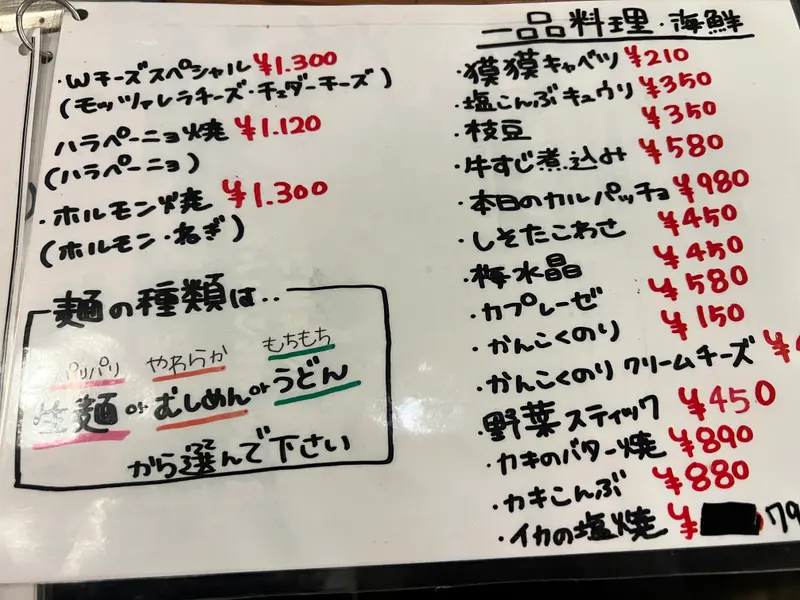 ・Wチーズスペシャル ¥1.300
(モッツァレラチーズ・チェダーチーズ)
ハラペーニョ焼 ¥1.120
(ハラペーニョ)
・ホルモン焼 ¥1.300
(ホルモン・ねぎ)
麺の種類は..
パリパリ やわらか もちもち
生麺 or むしめん or うどん
から選んで下さい
一品料理・海鮮
・獏獏キャベツ ¥210
・塩こんぶキュウリ ¥350
・枝豆 ¥350
・牛すじ煮込み ¥580
・本日のカルパッチョ ¥980
・しそたこわさ ¥450
・梅水晶 ¥450
・カプレーゼ ¥580
・かんこくのり ¥150
・かんこくのり クリームチーズ ¥
・野菜スティック ¥450
・カキのバター焼 ¥890
・カキこんぶ ¥880
・イカの塩焼 ¥ 79